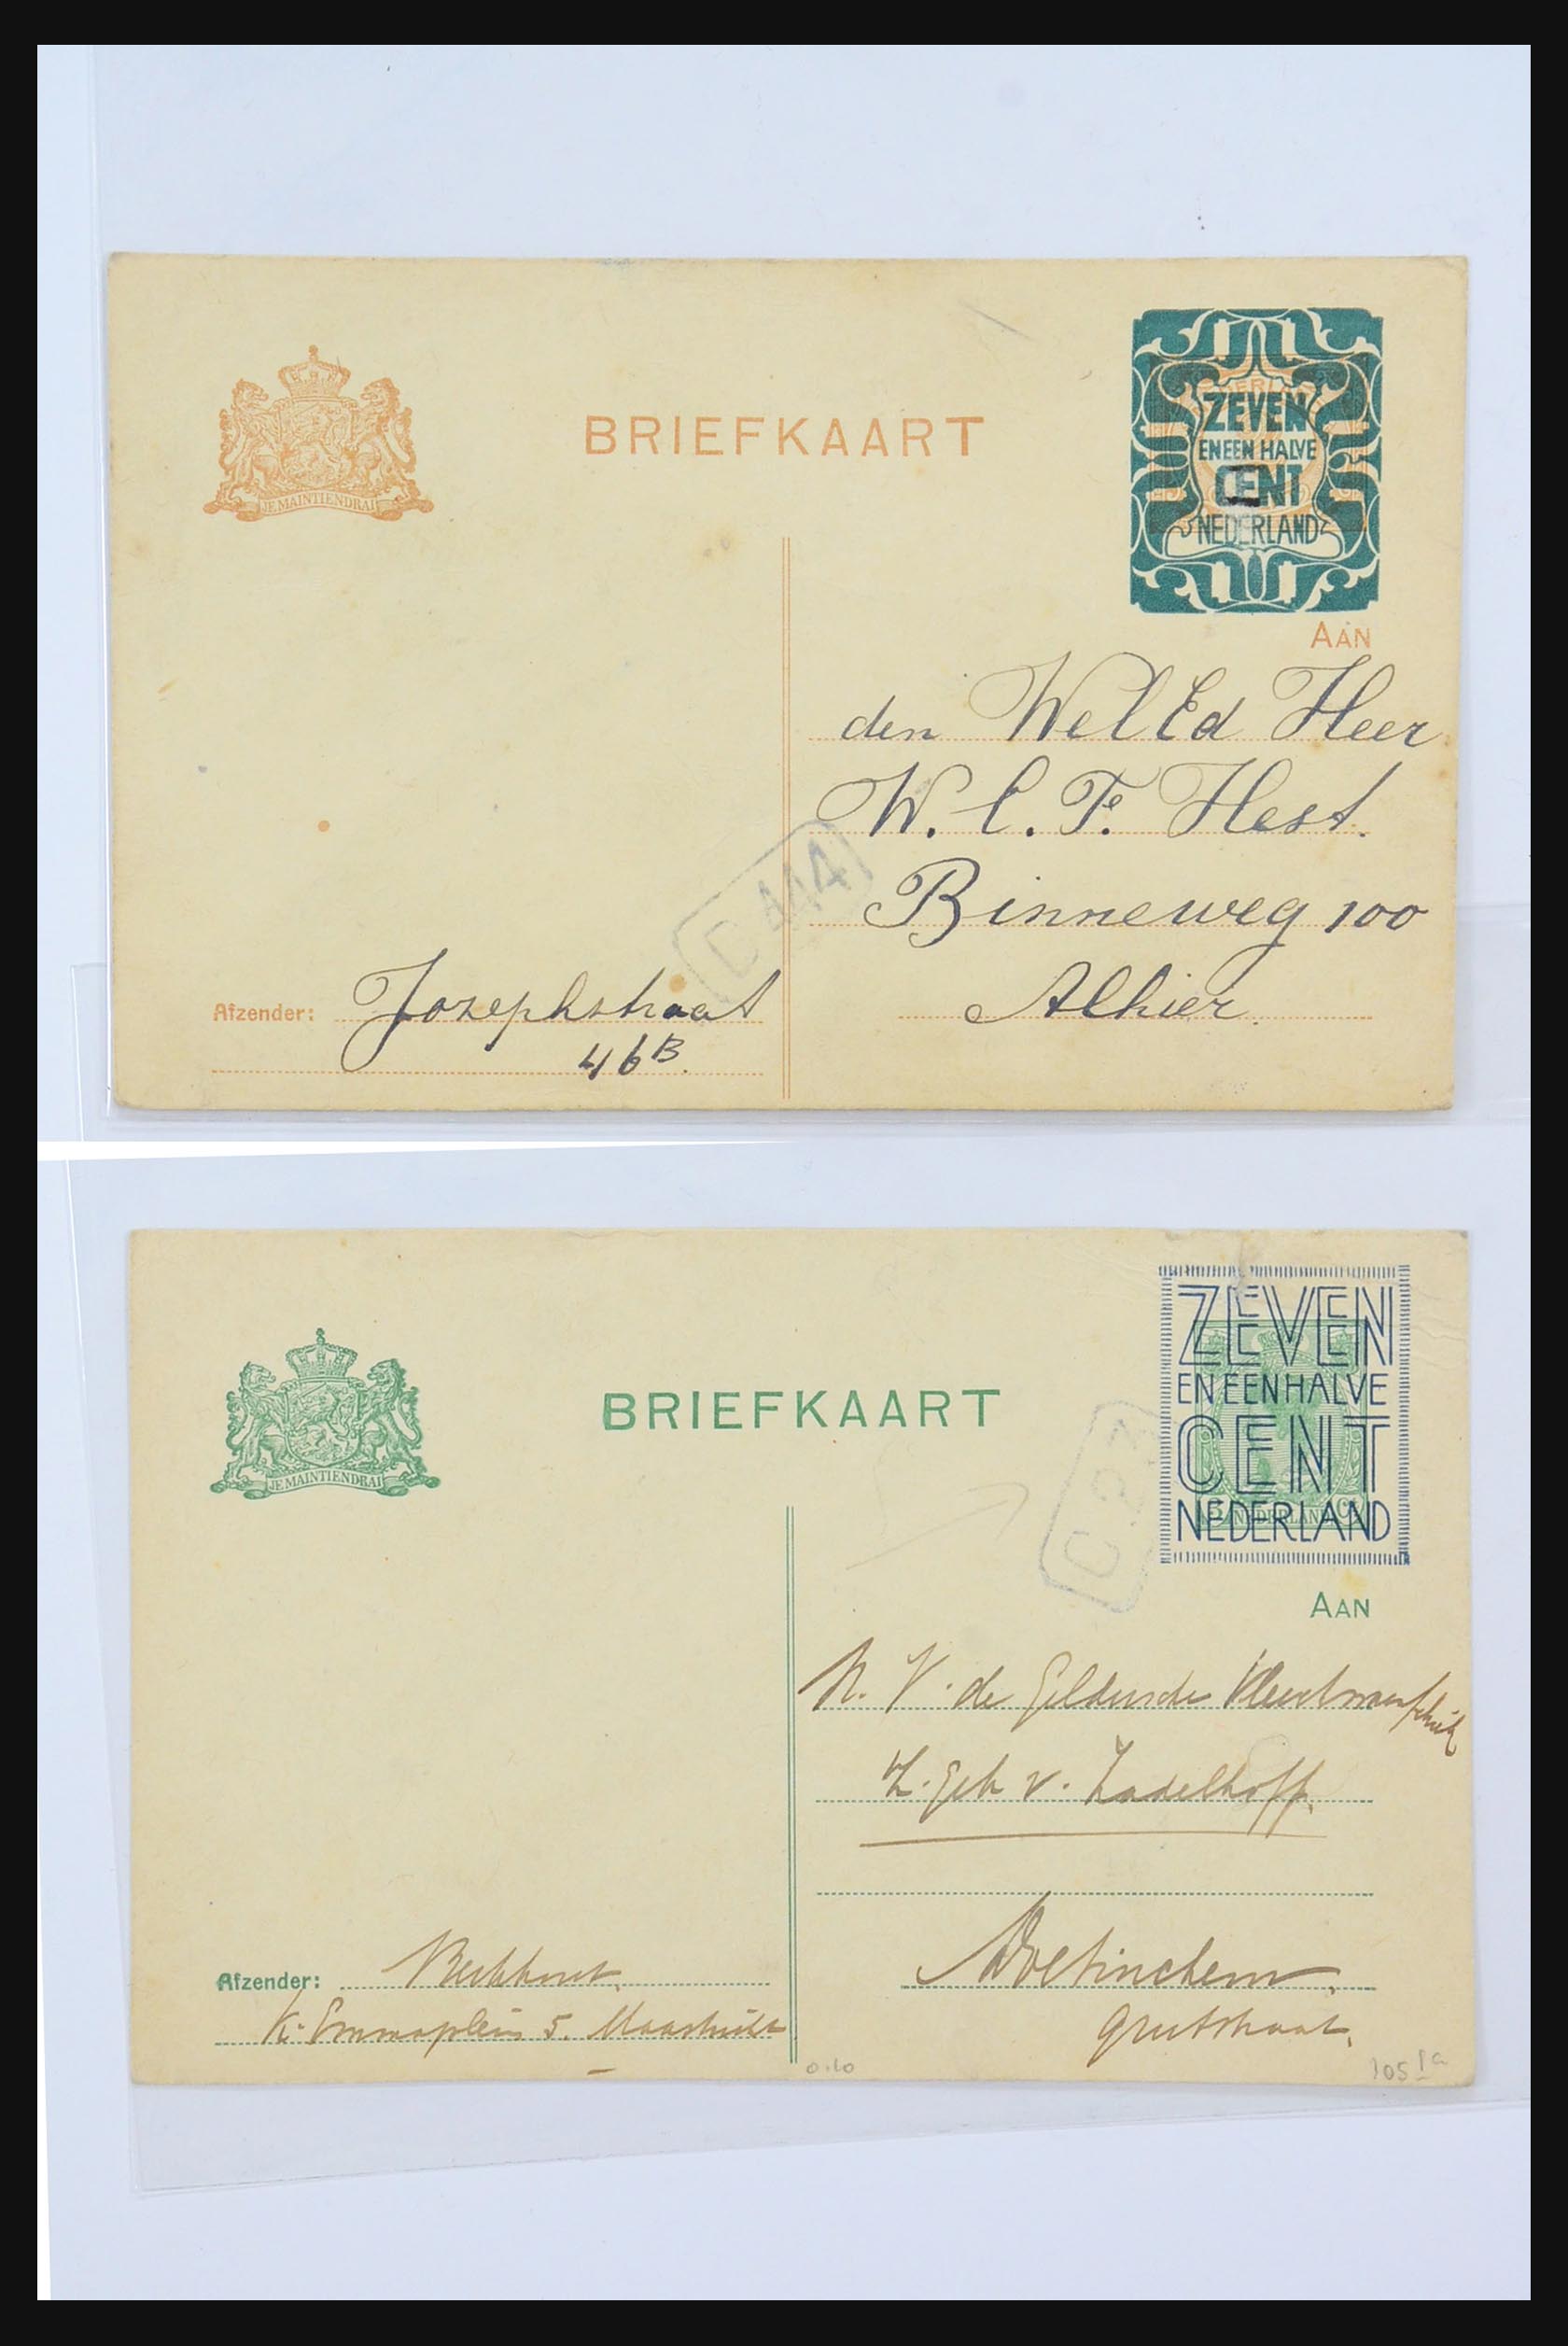 JE MAINTIENDRAI
BRIEFKAART
ZEVEN
EN EEN HALVE
CENT
NEDERLAND
AAN
den Wel Ed Heer
W. C. F. Hest.
Binneweg 100
Alhier.
D 444
Afzender: Jozephstraat
46B.
JE MAINTIENDRAI
BRIEFKAART
ZEVEN
EN EEN HALVE
CENT
NEDERLAND
AAN
N. V. de Geldersche
v. Zadelhoff.
Doetinchem,
Grutstraat,
Afzender:
K. Emmaplein 5. Maastricht
0.10
105 Ia